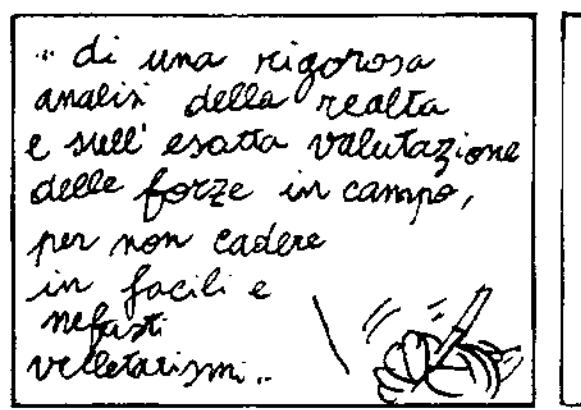 .. di una rigorosa
analisi della realtà
e sull' esatta valutazione
delle forze in campo,
per non cadere
in facili e
nefasti
velletarismi..